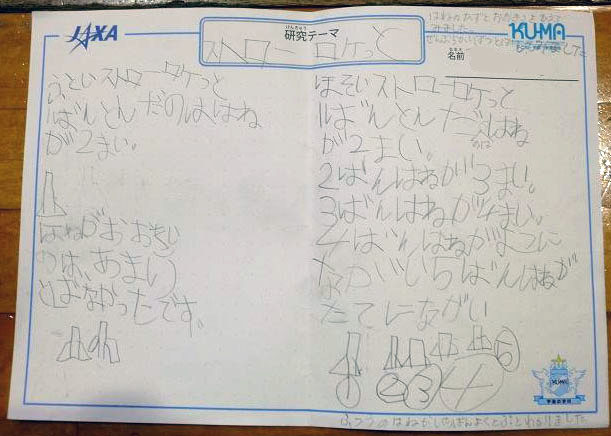 JAXA
研究テーマ
けんきゅう
ストローロケっと
はねのかずとおおきさをかえて
みました
KUMA
名前
なまえ
ふといストローロケっと
1ばんとんだのははね
が2まい。
はねがおおきい
のは、あまり
とばなかったです。
ほそいストローロケっと
1ばんとんだのははね
が2まい。
2ばんはねが3まい。
3ばんはねが4まい。
4ばんはねがよこに
ながい5ばんはねが
たてにながい
1
2
3
4
5
KUMA
ふつうのはねが
とぶとわかりました